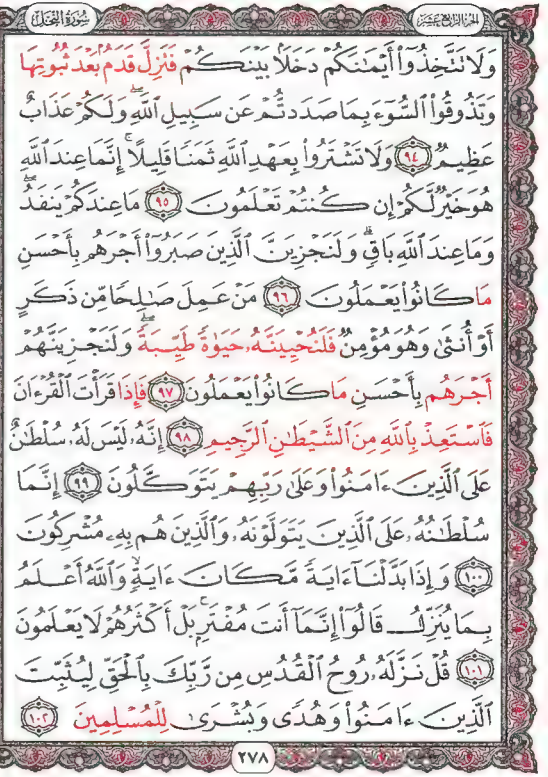 سُورَةُ النَّحْلِ
الجُزْءُ الرَّابِعَ عَشَرَ
وَلَا تَتَّخِذُوٓا۟ أَيْمَـٰنَكُمْ دَخَلًۢا بَيْنَكُمْ فَتَزِلَّ قَدَمٌۢ بَعْدَ ثُبُوتِهَا
وَتَذُوقُوا۟ ٱلسُّوٓءَ بِمَا صَدَدتُّمْ عَن سَبِيلِ ٱللَّهِ ۖ وَلَكُمْ عَذَابٌ
عَظِيمٌ ٩٤ وَلَا تَشْتَرُوا۟ بِعَهْدِ ٱللَّهِ ثَمَنًا قَلِيلًا ۚ إِنَّمَا عِندَ ٱللَّهِ
هُوَ خَيْرٌ لَّكُمْ إِن كُنتُمْ تَعْلَمُونَ ٩٥ مَا عِندَكُمْ يَنفَدُ ۖ
وَمَا عِندَ ٱللَّهِ بَاقٍ ۗ وَلَنَجْزِيَنَّ ٱلَّذِينَ صَبَرُوٓا۟ أَجْرَهُم بِأَحْسَنِ
مَا كَانُوا۟ يَعْمَلُونَ ٩٦ مَنْ عَمِلَ صَـٰلِحًا مِّن ذَكَرٍ
أَوْ أُنثَىٰ وَهُوَ مُؤْمِنٌ فَلَنُحْيِيَنَّهُۥ حَيَوٰةً طَيِّبَةً ۖ وَلَنَجْزِيَنَّهُمْ
أَجْرَهُم بِأَحْسَنِ مَا كَانُوا۟ يَعْمَلُونَ ٩٧ فَإِذَا قَرَأْتَ ٱلْقُرْءَانَ
فَٱسْتَعِذْ بِٱللَّهِ مِنَ ٱلشَّيْطَـٰنِ ٱلرَّجِيمِ ٩٨ إِنَّهُۥ لَيْسَ لَهُۥ سُلْطَـٰنٌ
عَلَى ٱلَّذِينَ ءَامَنُوا۟ وَعَلَىٰ رَبِّهِمْ يَتَوَكَّلُونَ ٩٩ إِنَّمَا
سُلْطَـٰنُهُۥ عَلَى ٱلَّذِينَ يَتَوَلَّوْنَهُۥ وَٱلَّذِينَ هُم بِهِۦ مُشْرِكُونَ
١٠٠ وَإِذَا بَدَّلْنَآ ءَايَةً مَّكَانَ ءَايَةٍ ۙ وَٱللَّهُ أَعْلَمُ
بِمَا يُنَزِّلُ قَالُوٓا۟ إِنَّمَآ أَنتَ مُفْتَرٍۭ ۚ بَلْ أَكْثَرُهُمْ لَا يَعْلَمُونَ
١٠١ قُلْ نَزَّلَهُۥ رُوحُ ٱلْقُدُسِ مِن رَّبِّكَ بِٱلْحَقِّ لِيُثَبِّتَ
ٱلَّذِينَ ءَامَنُوا۟ وَهُدًى وَبُشْرَىٰ لِلْمُسْلِمِينَ ١٠٢
٢٧٨